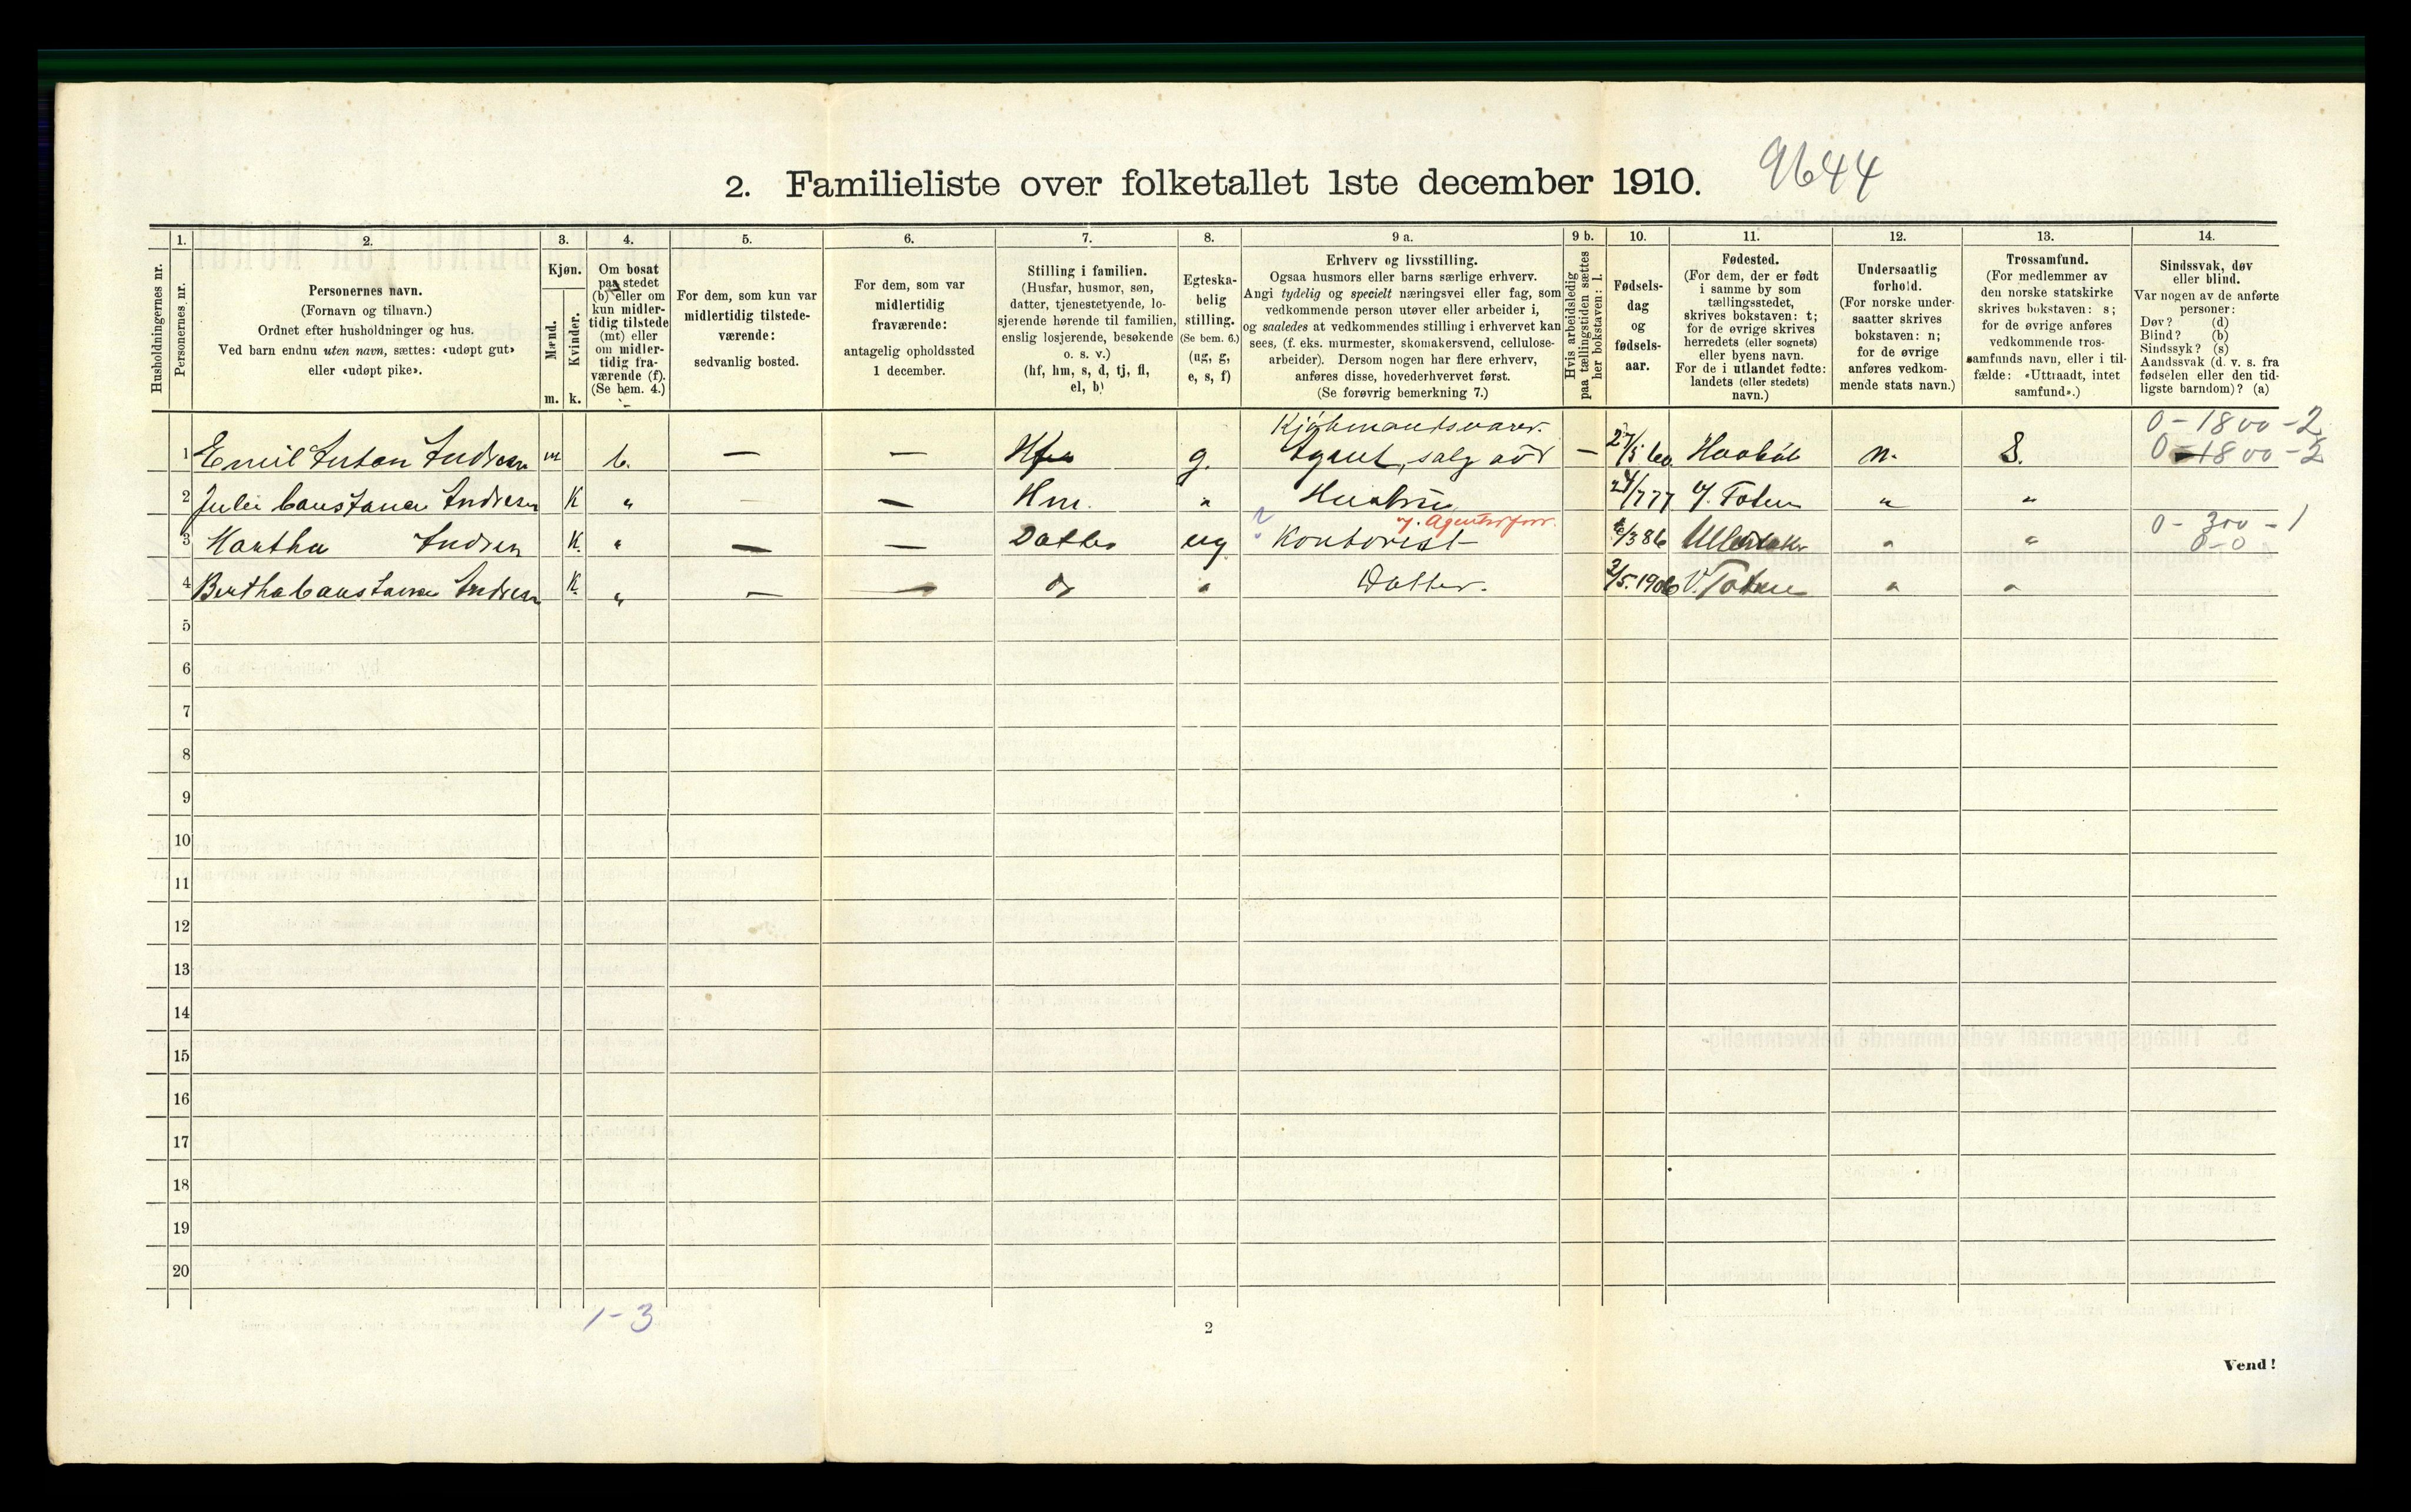 2. Familieliste over folketallet 1ste december 1910. 9644
Husholdningernes nr.
1.
Personernes nr.
2.
Personernes navn.
(Fornavn og tilnavn.)
Ordnet efter husholdninger og hus.
Ved barn endnu uten navn, sættes: «udøpt gut»
eller «udøpt pike».
3.
Kjøn.
Mænd.
Kvinder.
m. k.
4.
Om bosat
paa stedet
(b) eller om
kun midler-
tidig tilstede
(mt) eller
om midler-
tidig fra-
værende (f).
(Se bem. 4.)
5.
For dem, som kun var
midlertidig tilstede-
værende:
sedvanlig bosted.
6.
For dem, som var
midlertidig
fraværende:
antagelig opholdssted
1 december.
7.
Stilling i familien.
(Husfar, husmor, søn,
datter, tjenestetyende, lo-
sjerende hørende til familien,
enslig losjerende, besøkende
o. s. v.)
(hf, hm, s, d, tj, fl,
el, b)
8.
Egteska-
belig
stilling.
(Se bem. 6.)
(ug, g,
e, s, f)
9 a.
Erhverv og livsstilling.
Ogsaa husmors eller barns særlige erhverv.
Angi tydelig og specielt næringsvei eller fag, som
vedkommende person utøver eller arbeider i,
og saaledes at vedkommendes stilling i erhvervet kan
sees, (f. eks. murmester, skomakersvend, cellulose-
arbeider). Dersom nogen har flere erhverv,
anføres disse, hovederhvervet først.
(Se forøvrig bemerkning 7.)
9 b.
Hvis arbeidsledig
paa tællingstiden sættes
her bokstaven: l.
10.
Fødsels-
dag
og
fødsels-
aar.
11.
Fødested.
(For dem, der er født
i samme by som
tællingsstedet,
skrives bokstaven: t;
for de øvrige skrives
herredets (eller sognets)
eller byens navn.
For de i utlandet fødte:
landets (eller stedets)
navn.)
12.
Undersaatlig
forhold.
(For norske under-
saatter skrives
bokstaven: n;
for de øvrige
anføres vedkom-
mende stats navn.)
13.
Trossamfund.
(For medlemmer av
den norske statskirke
skrives bokstaven: s;
for de øvrige anføres
vedkommende tros-
samfunds navn, eller i til-
fælde: «Uttraadt, intet
samfund».)
14.
Sindssvak, døv
eller blind.
Var nogen av de anførte
personer:
Døv? (d)
Blind? (b)
Sindssyk? (s)
Aandssvak (d. v. s. fra
fødselen eller den tid-
ligste barndom)? (a)
Kjøbmandsvarer. 0-1800-2
1 Emil Anton Andresen m b. — — Hfa g. Agent, salg av — 27/5 60 Haabøl n. S. 0-1800-2
2 Julie Constance Andresen K " — — Hm. " Hustru 24/7 77 V. Toten " "
v. Agentforr. 0-300-1
3 Martha Andresen K. " — — Datter ug Kontorist /3 86 Ullensaker " " 0-0
4 Bertha Constance Andresen K. " — — " Datter. 2/5.1906 V. Toten " "
5
6
7
8
9
10
11
12
13
14
15
16
17
18
19
20
1-3
2
Vend!